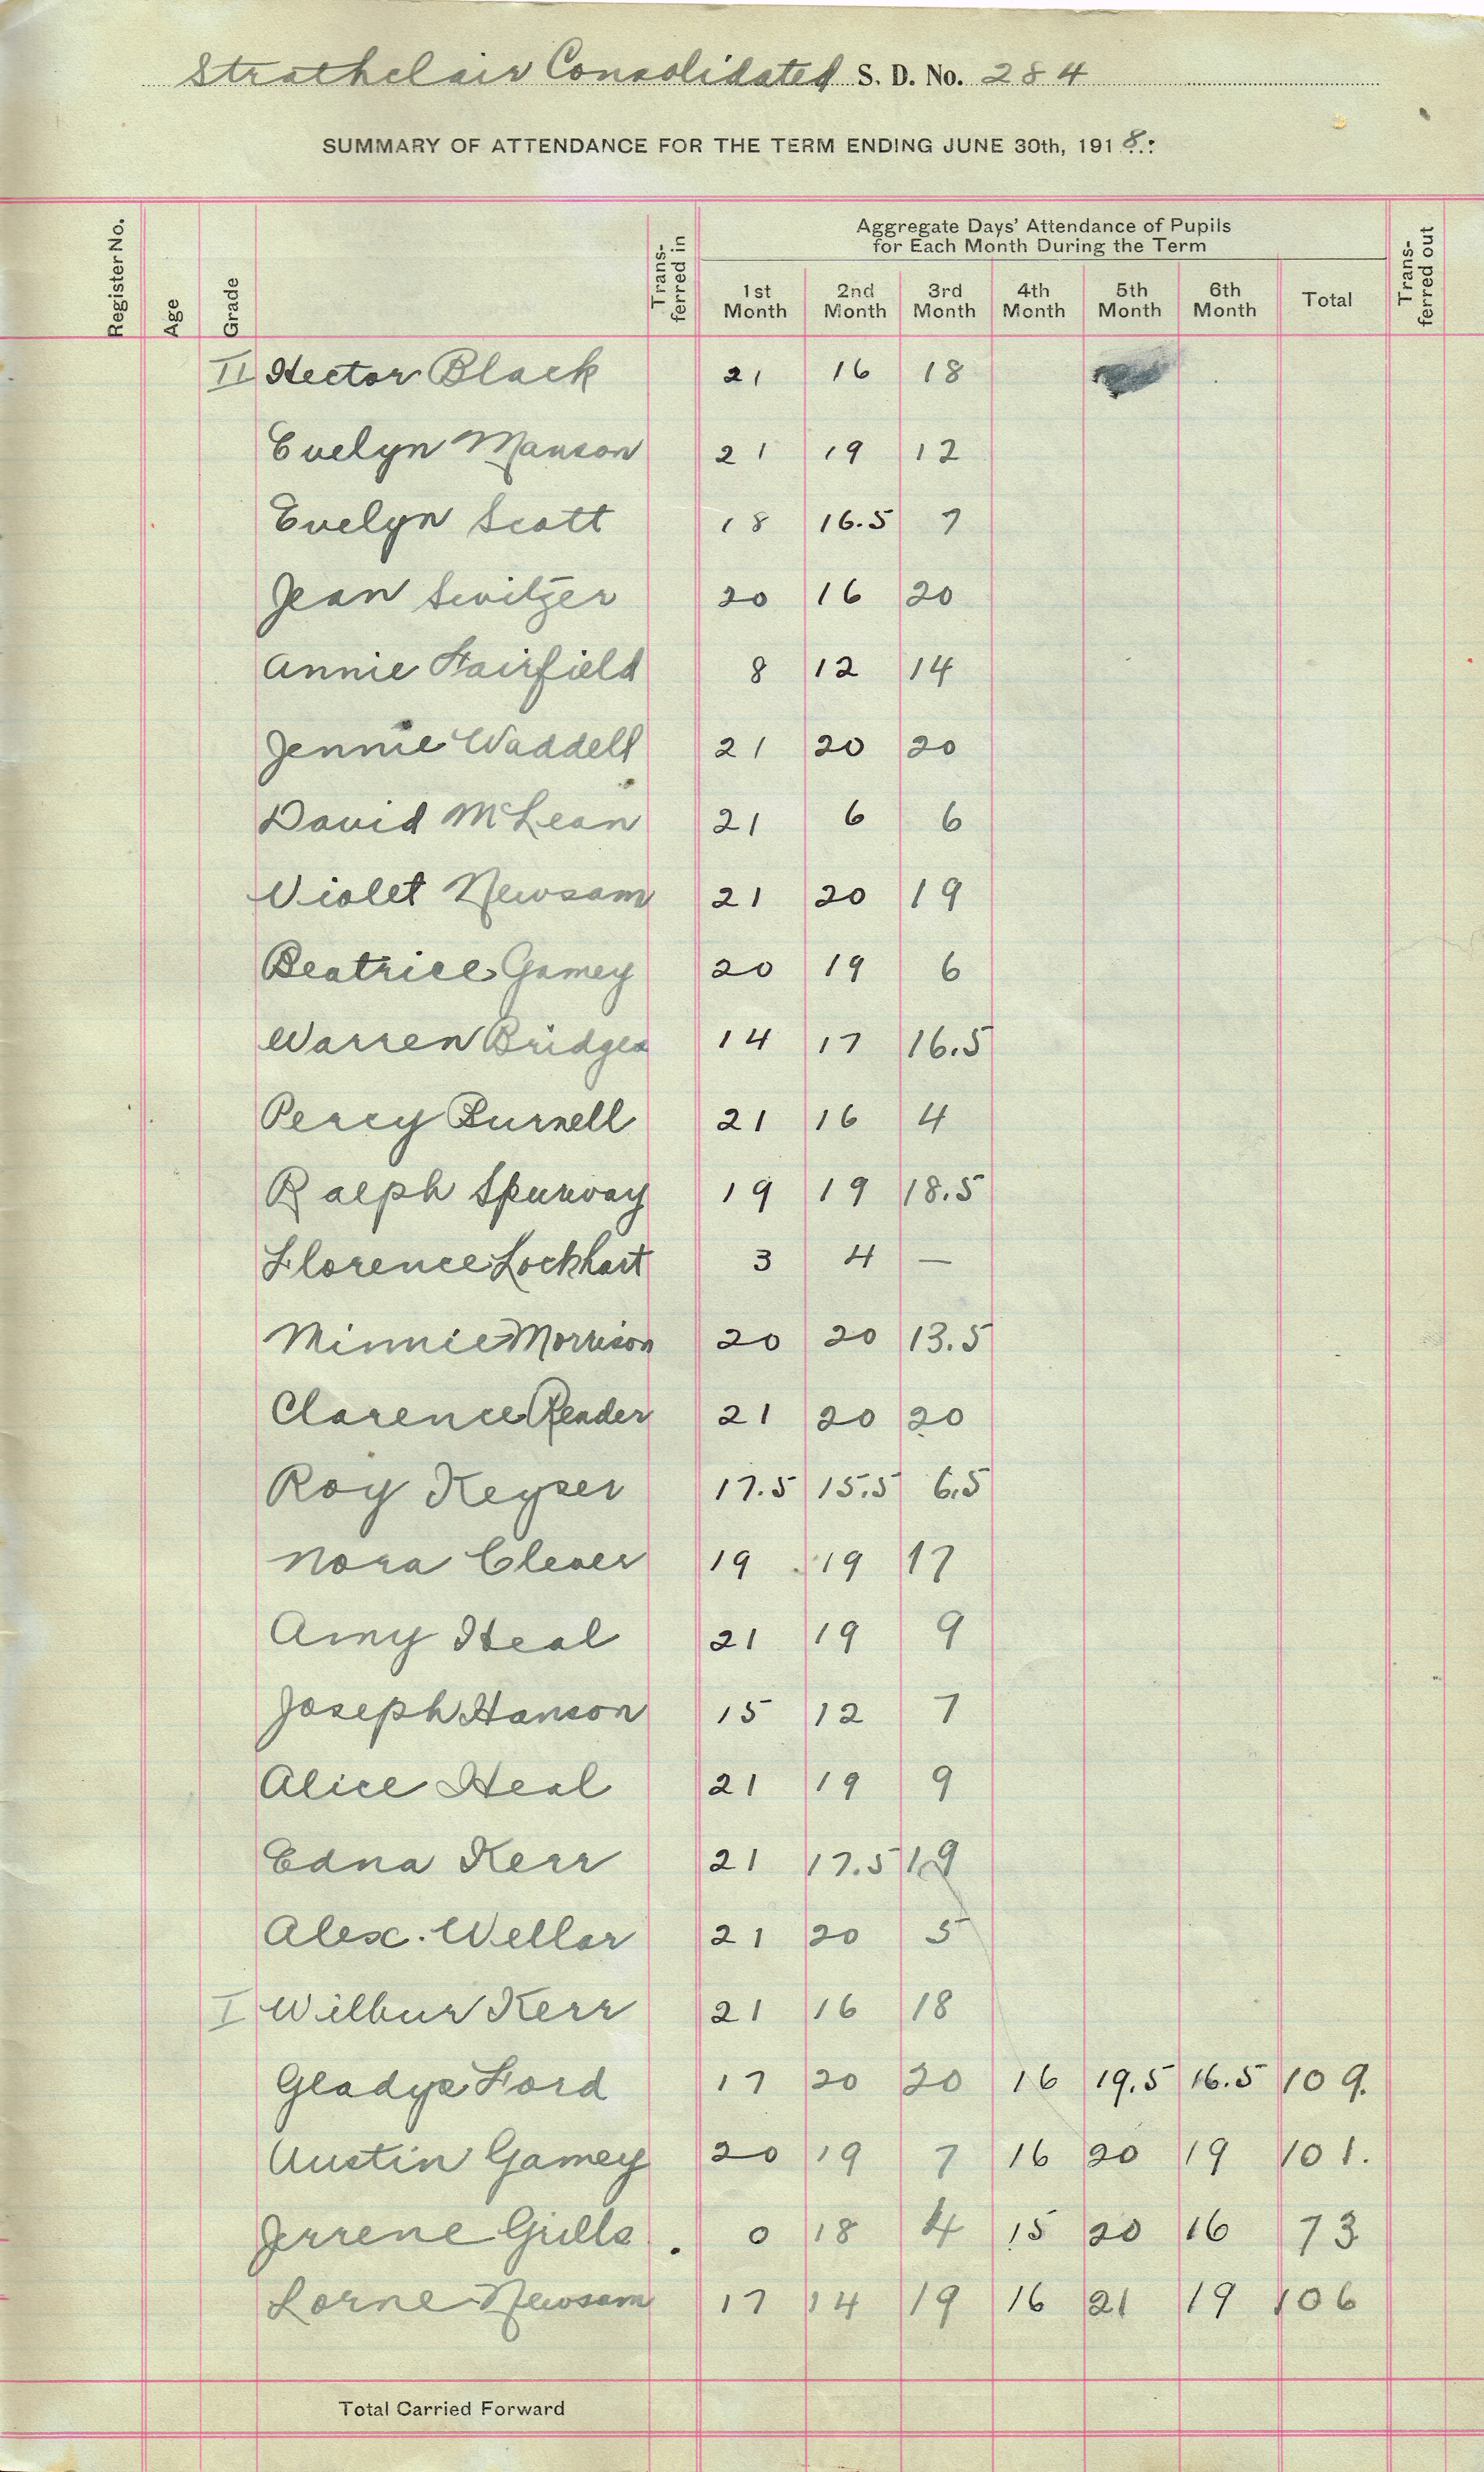 Strathclair Consolidated S. D. No. 284
SUMMARY OF ATTENDANCE FOR THE TERM ENDING JUNE 30th, 1918.
Register No. Age Grade Trans-ferred in Aggregate Days' Attendance of Pupils for Each Month During the Term Trans-ferred out
1st Month 2nd Month 3rd Month 4th Month 5th Month 6th Month Total
II Hector Black 21 16 18
Evelyn Manson 21 19 12
Evelyn Scott 18 16.5 7
Jean Switzer 20 16 20
Annie Fairfield 8 12 14
Jennie Waddell 21 20 20
David McLean 21 6 6
Violet Newsam 21 20 19
Beatrice Gamey 20 19 6
Warren Bridges 14 17 16.5
Percy Burnell 21 16 4
Ralph Spurway 19 19 18.5
Florence Lockhart 3 4 —
Minnie Morrison 20 20 13.5
Clarence Reader 21 20 20
Roy Keyser 17.5 15.5 6.5
Nora Clever 19 19 17
Amy Heal 21 19 9
Joseph Hanson 15 12 7
Alice Heal 21 19 9
Edna Kerr 21 17.5 19
Alex. Wellar 21 20 5
I Wilbur Kerr 21 16 18
Gladys Ford 17 20 20 16 19.5 16.5 109.
Austin Gamey 20 19 7 16 20 19 101.
Jerrene Grills 0 18 4 15 20 16 73
Lorne Newsam 17 14 19 16 21 19 106
Total Carried Forward